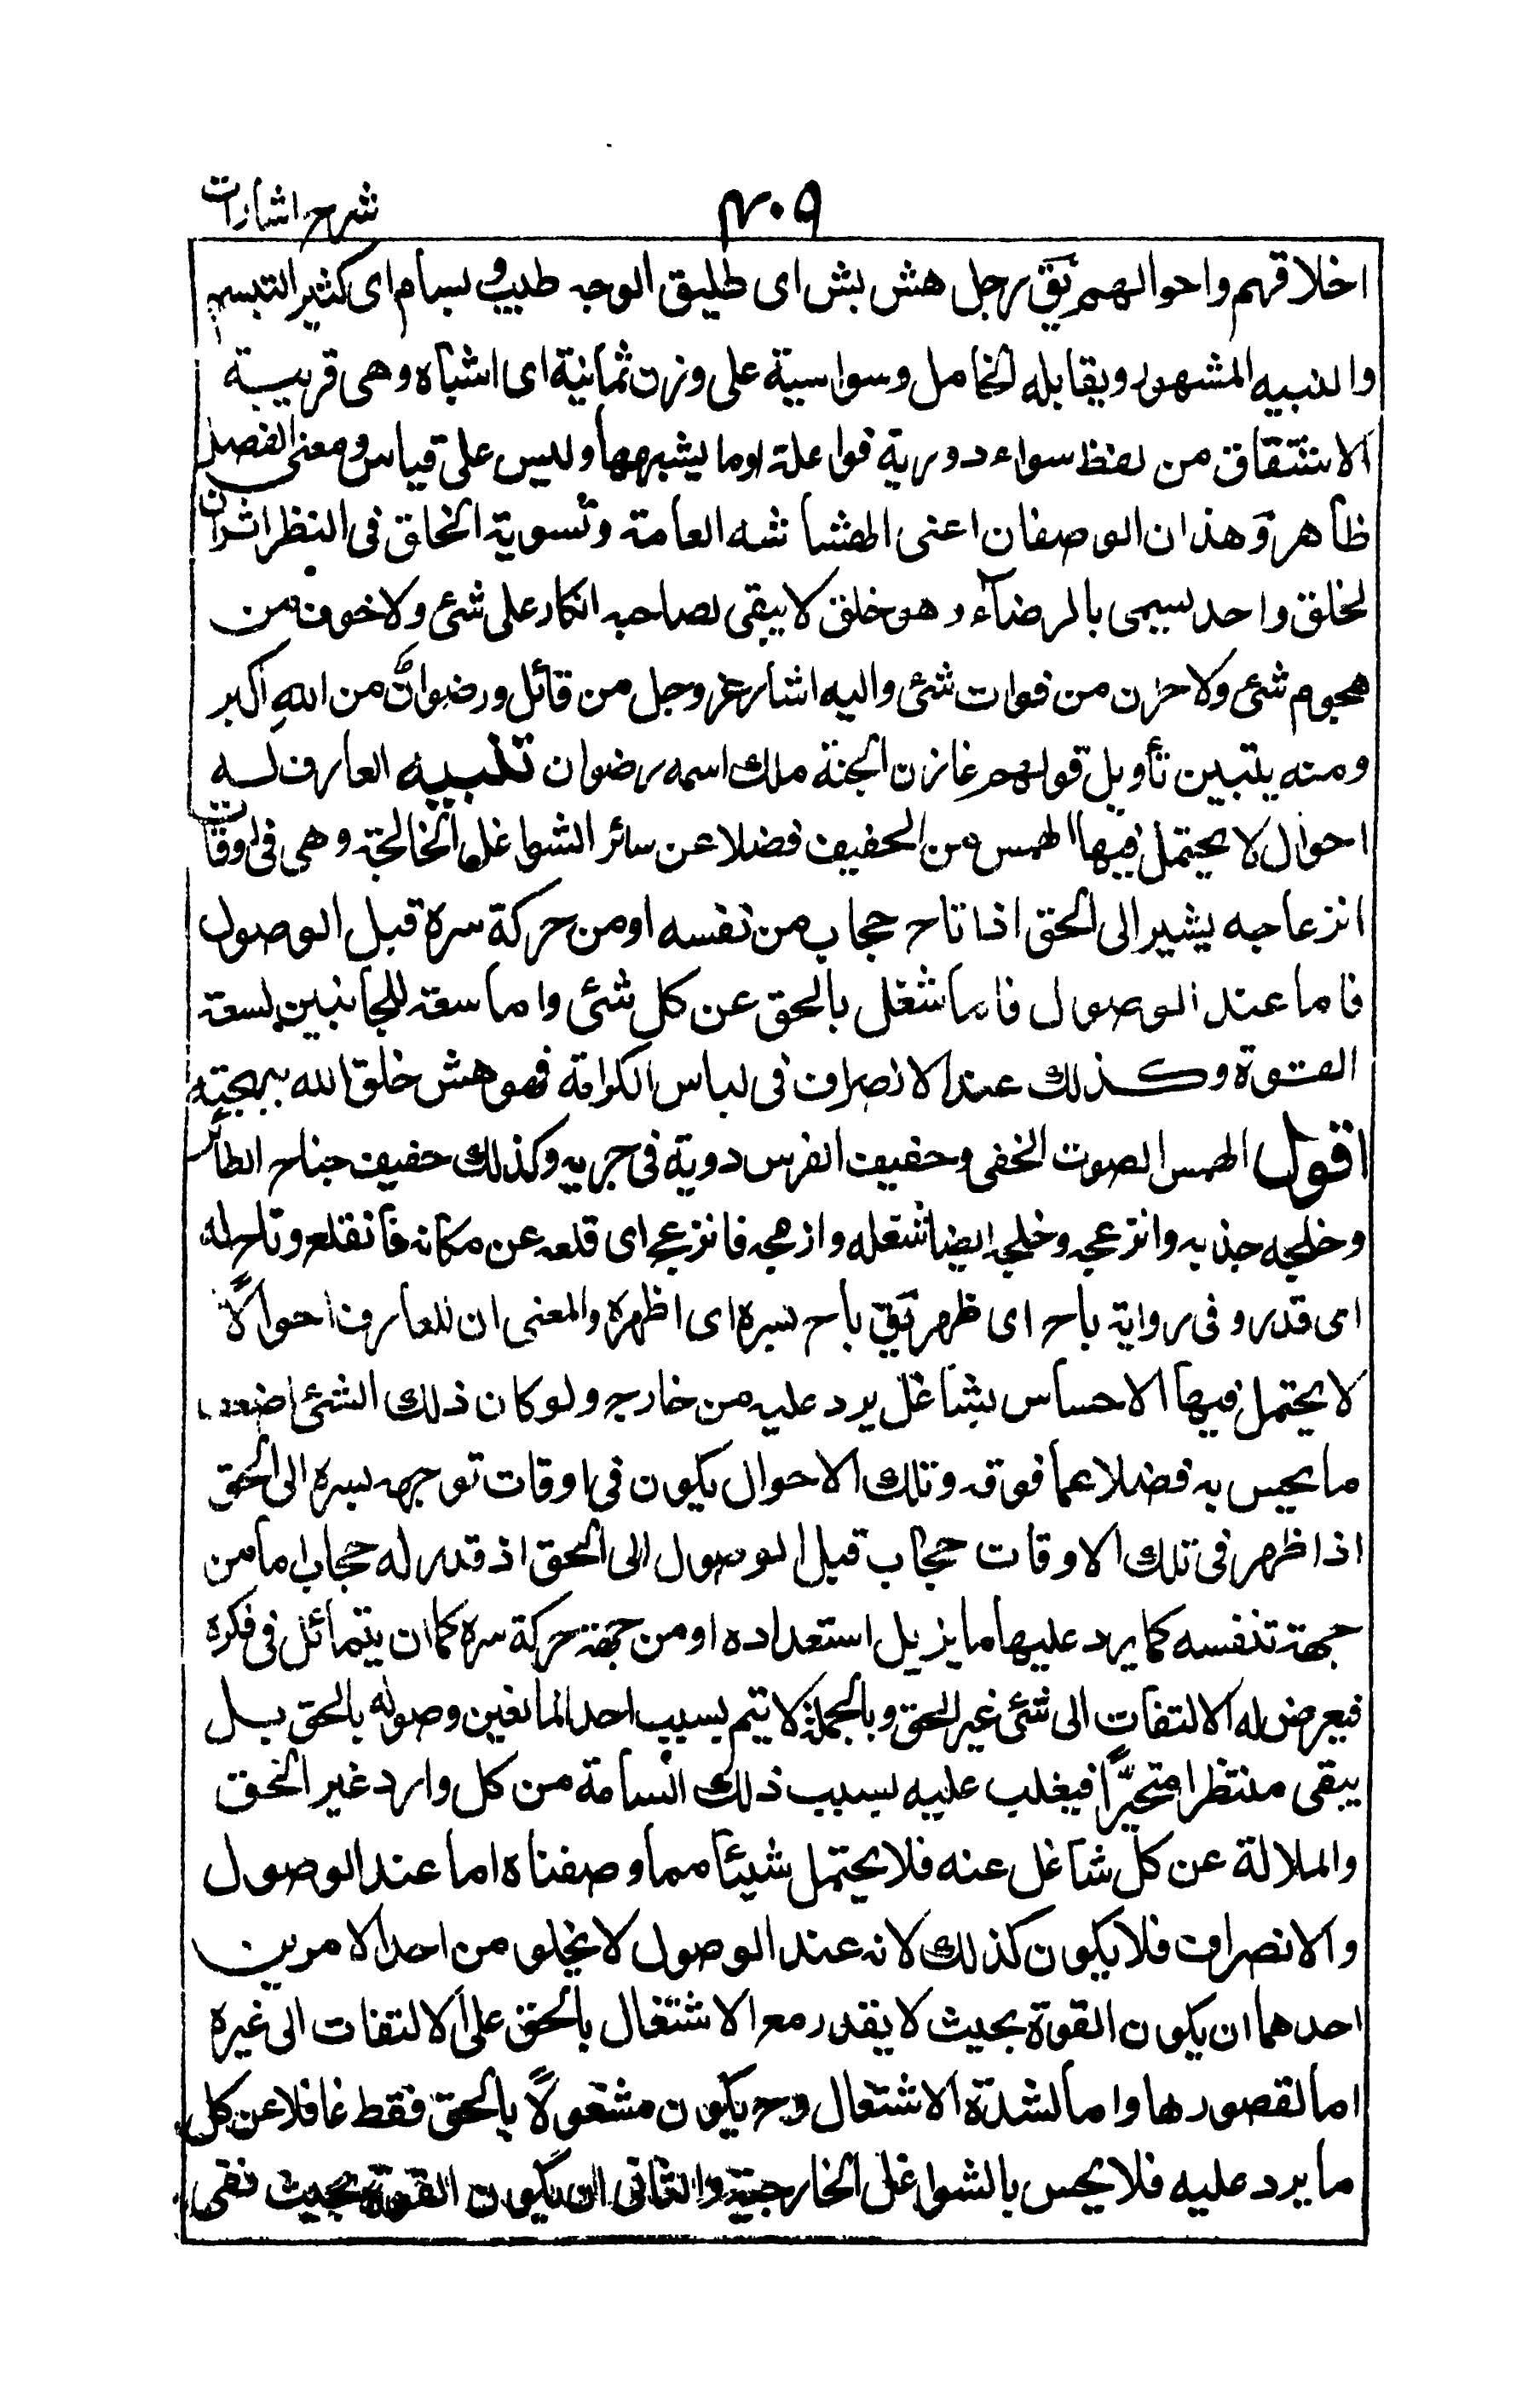 شرح اشارات
۴۰۹
اخلاقهم واحوالهم يق رجل هش بش اى طليق الوجه طيب وبسام اى كثير التبسم
والنبيه المشهور ويقابله الخامل وسواسية على وزن ثمانية اى اشباه وهى قريبة
الاشتقاق من لفظ سواء دورية فواعلة اوما يشبهها وليس على قياس ومعنى الفصل
ظاهر وهذان الوصفان اعنى الهشاشه العامة وتسوية الخلق فى النظر اثران
لخلق واحد يسمى بالرضاء وهو خلق لا يبقى لصاحبه انكار على شئ ولا خوف من
هجوم شئ ولا حزن من فوات شئ واليه اشار عز وجل من قائل ورضوانٌ من اللهِ اكبر
ومنه يتبين تأويل قولهم خازن الجنة ملك اسمه رضوان تنبيه العارف له
احوال لا يحتمل فيها الهمس من الحفيف فضلا عن سائر الشواغل الخالجة وهى فى اوقات
انزعاجه يشير الى الحق اذا تاح حجاب من نفسه اومن حركة سره قبل الوصول
فاما عند الوصول فاما شغل بالحق عن كل شئ واما سعة للجانبين لسعة
القوة وكذلك عند الانصراف فى لباس الكرامة فهو هش خلق الله ببهجته
اقول الهمس الصوت الخفى وحفيف الفرس دوية فى جريه وكذلك حفيف جناح الطائر
وخلجه جذبه وانزعجه وخلجه ايضا شغله وازعجه فانزعج اى قلعه عن مكانه فانقلع وتاح له
اى قدر وفى رواية باح اى ظهر يق باح بسره اى اظهره والمعنى ان للعارف احوالًا
لا يحتمل فيها الاحساس بشاغل يرد عليه من خارج ولو كان ذلك الشئ اضعف
ما يحس به فضلا عما فوقه وتلك الاحوال يكون فى اوقات توجهه بسره الى الحق
اذا ظهر فى تلك الاوقات حجاب قبل الوصول الى الحق اذ قدر له حجاب اما من
جهة نفسه كما يرد عليها ما يزيل استعداده اومن جهة حركة سره كما ان يتمائل فى فكره
فيعرض له الالتفات الى شئ غير الحق وبالجملة لا يتم بسبب احد المانعين وصوله بالحق بل
يبقى منتظرا متحيّرًا فيغلب عليه بسبب ذلك السامة من كل وارد غير الحق
والملالة عن كل شاغل عنه فلا يحتمل شيئا مما وصفناه اما عند الوصول
والانصراف فلا يكون كذلك لانه عند الوصول لا يخلو من احد الامرين
احدهما ان يكون القوة بحيث لا يقدر مع الاشتغال بالحق على الالتفات الى غيره
اما لقصورها واما لشدة الاشتغال وح يكون مشغولًا بالحق فقط غافلا عن كل
ما يرد عليه فلا يحس بالشواغل الخارجية والثانى ان يكون القوة بحيث تفى